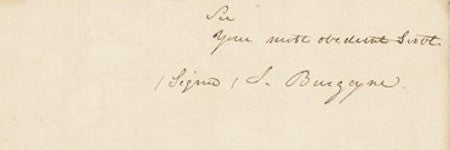 Sir
Your most obedient Servt.
(Signed) J. Burgoyne.